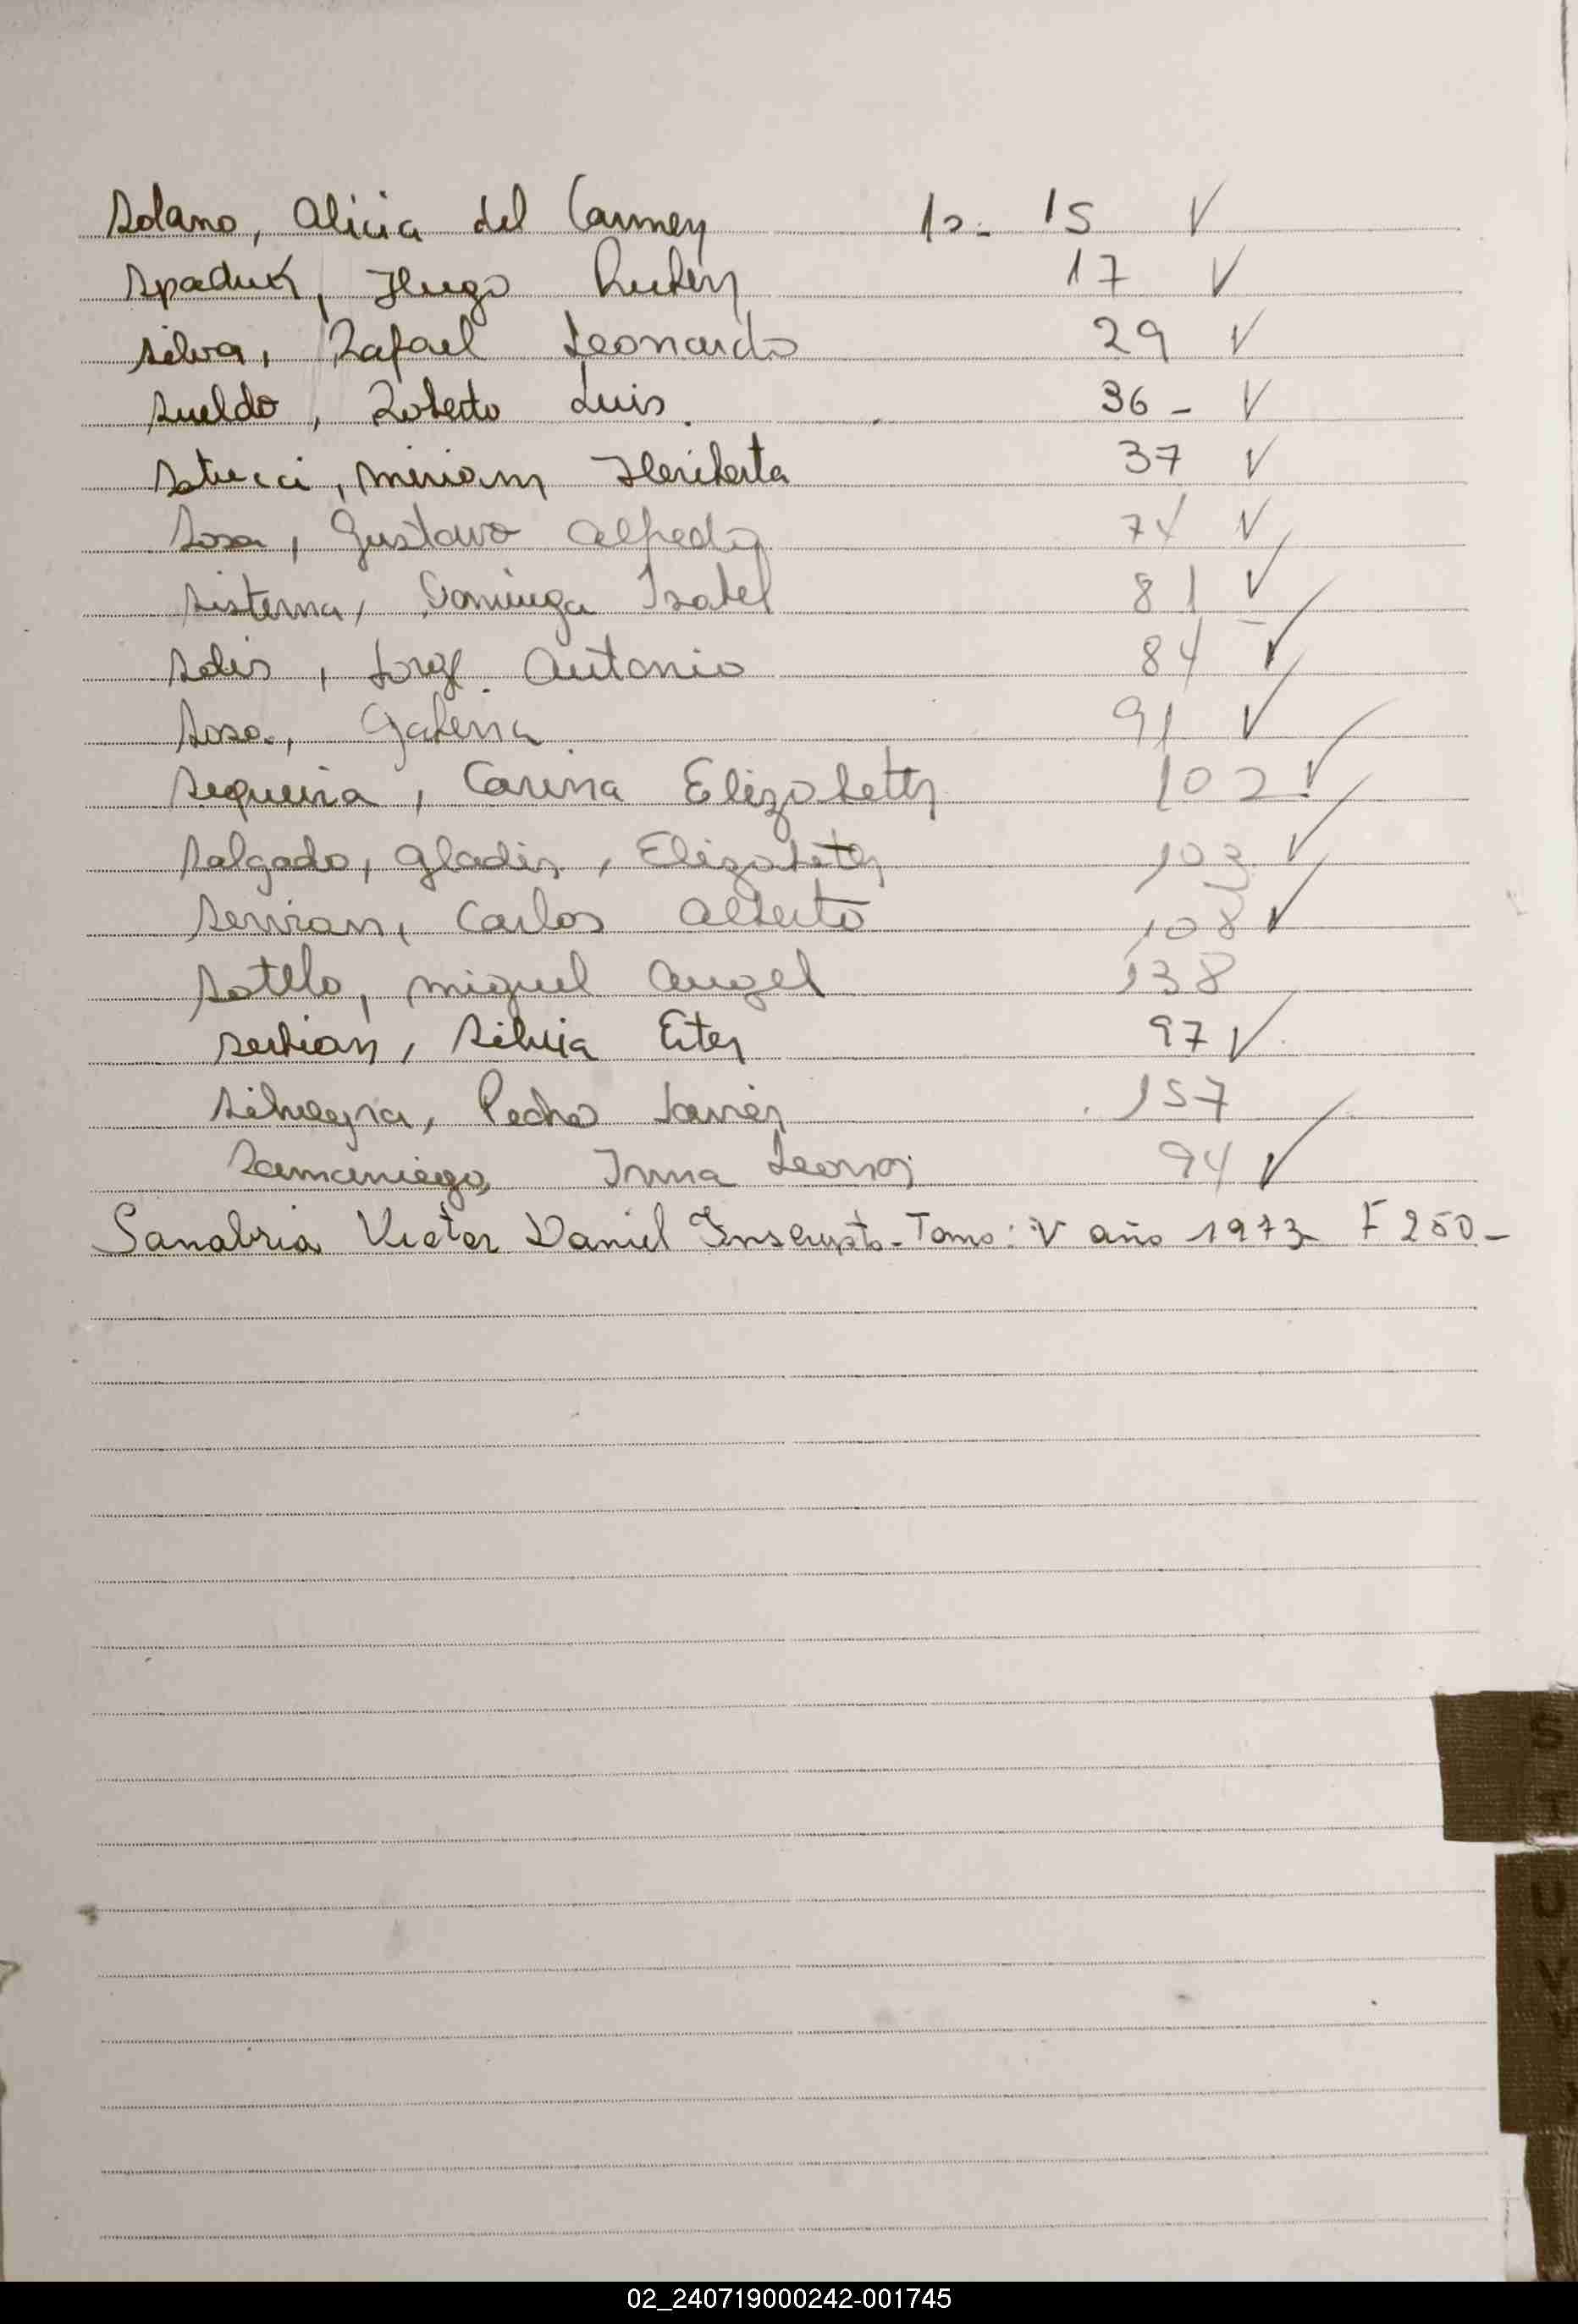 Solano, Alicia del Carmen 1o- 15 V
Spaduk, Hugo Ruben 17 V
Silva, Rafael Leonardo 29 V
Sueldo, Roberto Luis 36- V
Satucci, Miriam Heriberta 37 V
Sosa, Gustavo Alfredo 74 V
Sisterna, Dominga Isabel 81 V
Solis, Jorge Antonio 84 ✓
Sosa, 91 ✓
Sequeira, Carina Elizabeth 102 ✓
Salgado, Gladis, Elizabeth 103 ✓
Servian, Carlos Alberto 108 ✓
Sotelo, Miguel Angel 138
Servian, Silvia Ester 97 ✓
Silveyra, Pedro Javier 157
Samaniego, Irma Leonor 94 ✓
Sanabria Victor Daniel Inscripto-Tomo: V año 1973 F 250-
S
T
U
V
02_240719000242-001745